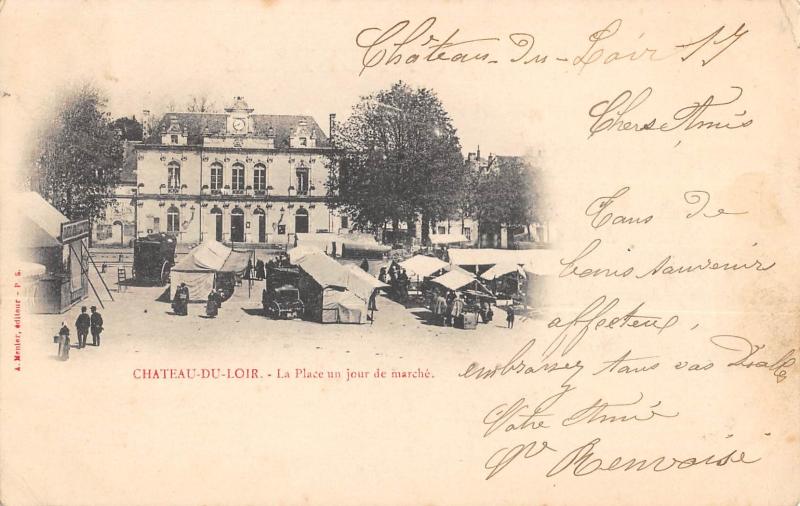 Château-du-Loir 17
Chers Amis
Tous de
bons souvenir
affecteux,
embrassez tous vos
Votre Amie
Renvoisé
CHATEAU-DU-LOIR. - La Place un jour de marché.
A. Menier, éditeur - P S.